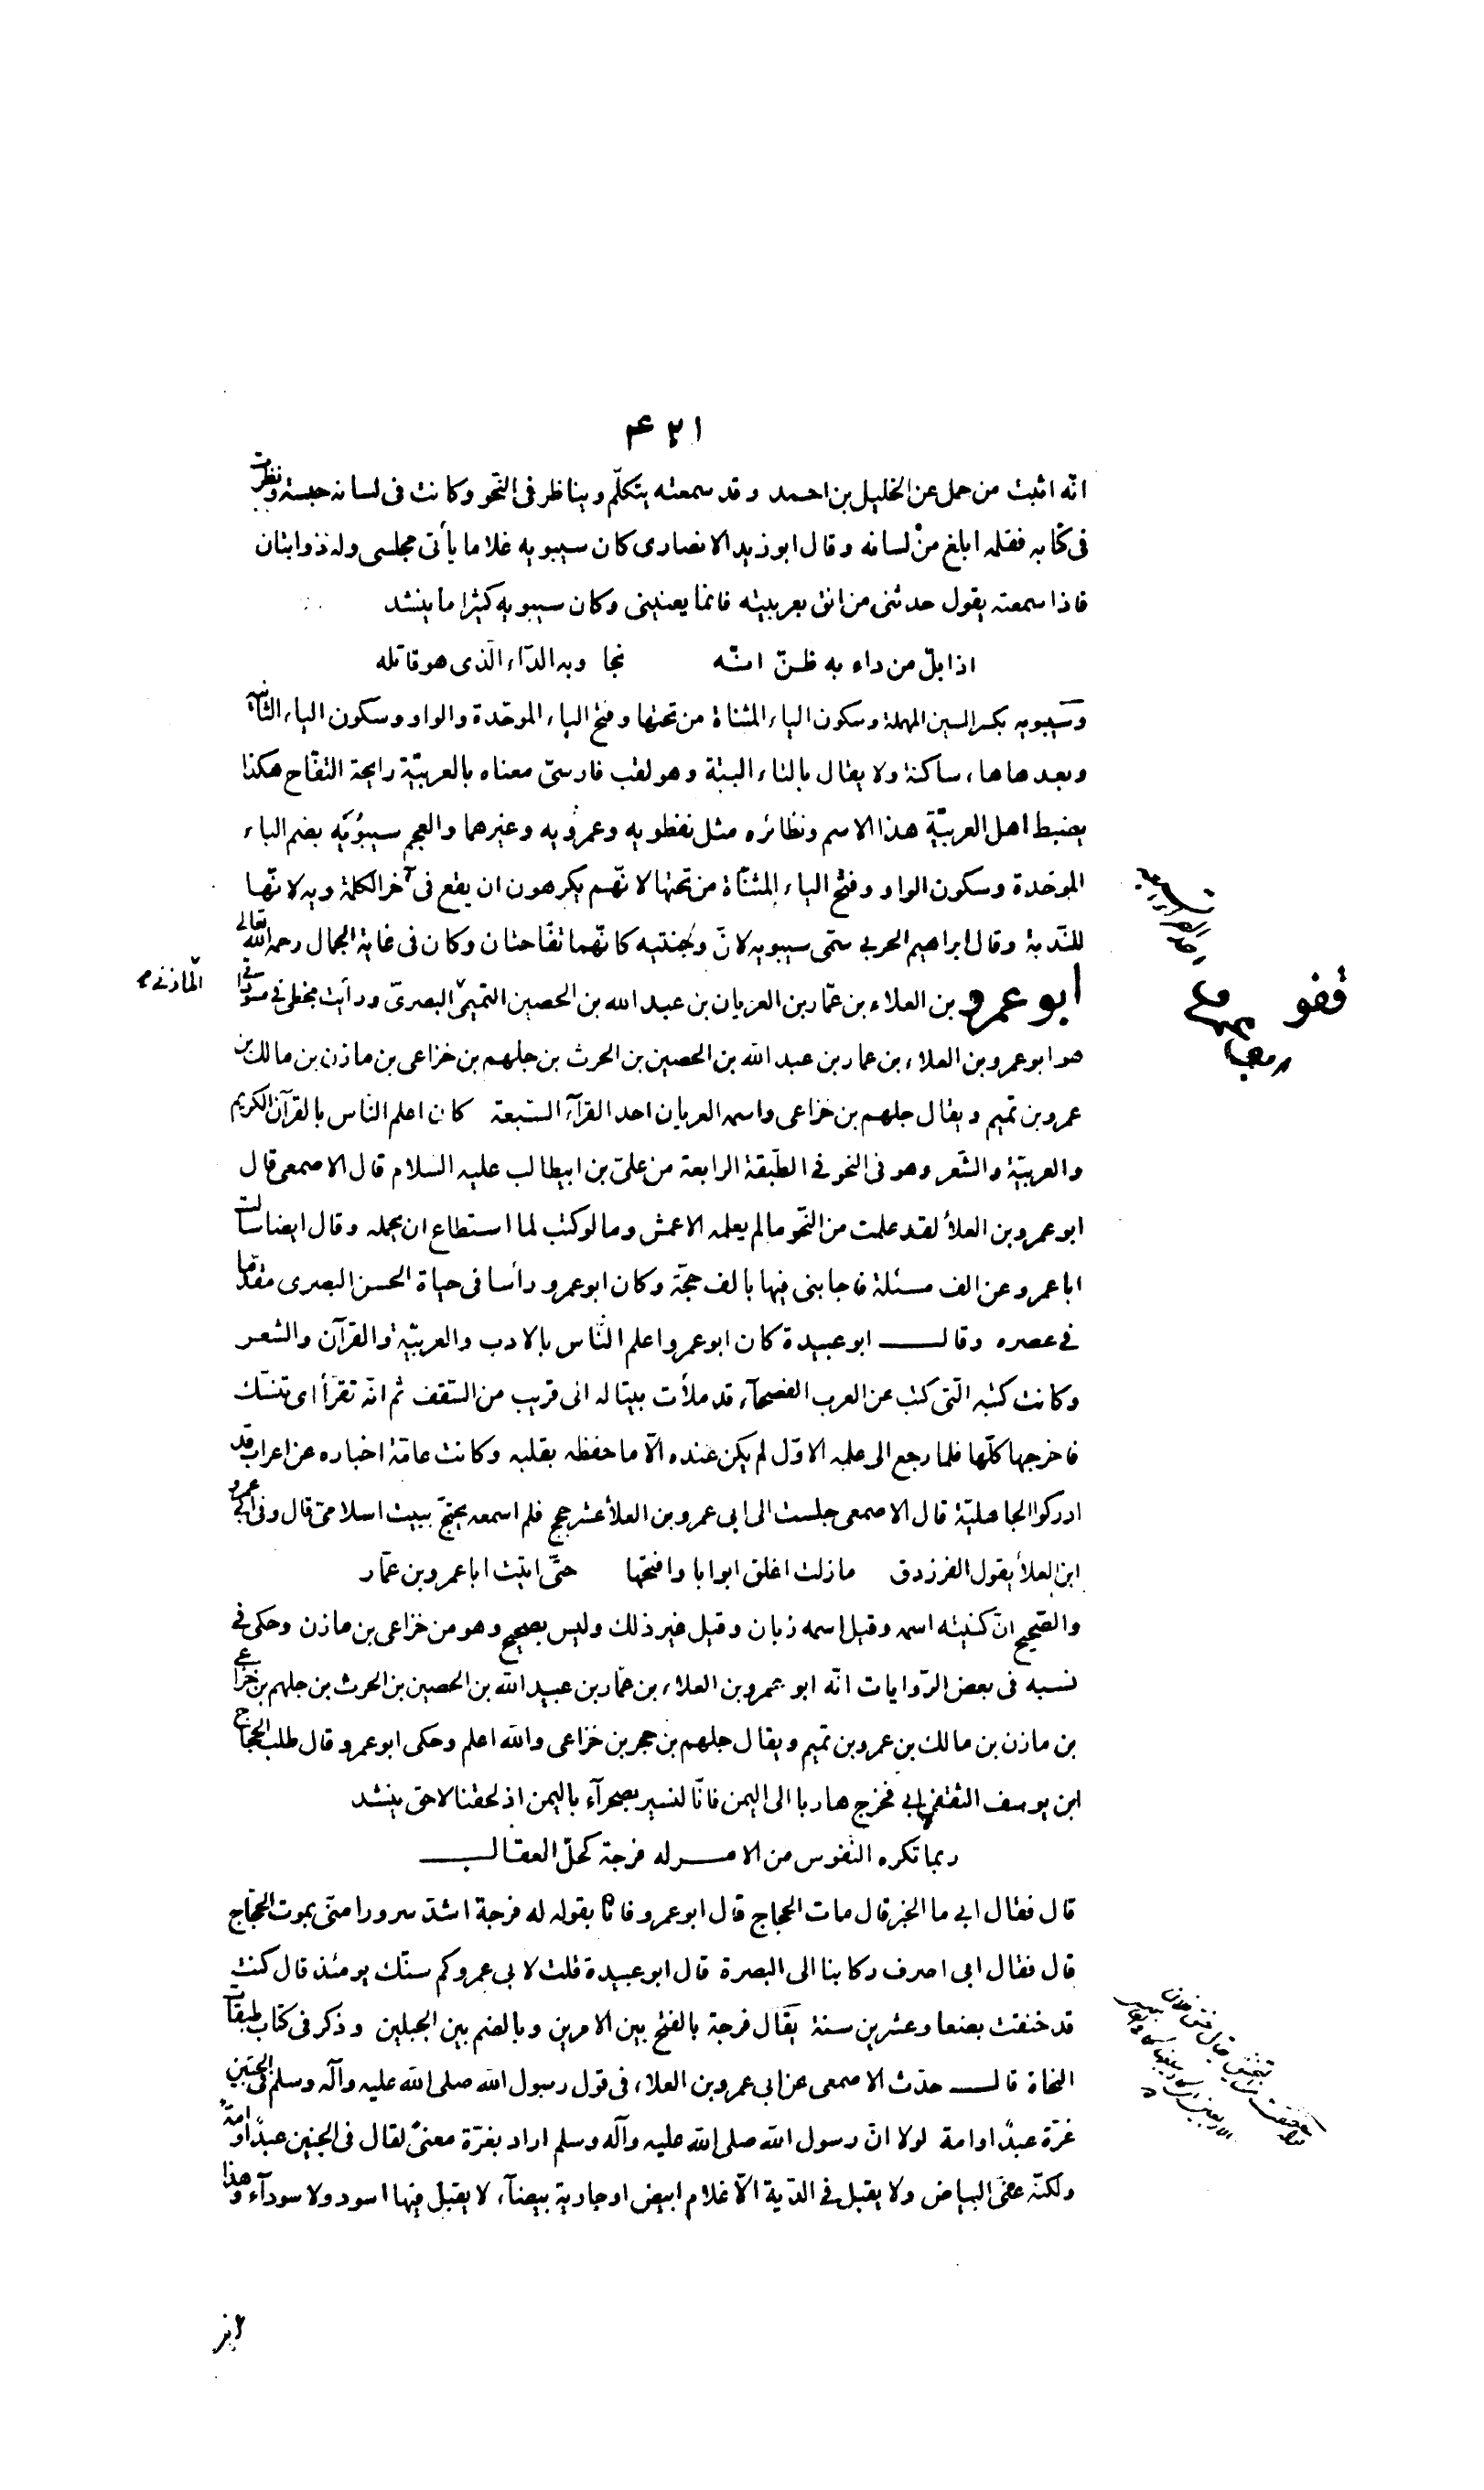 ٤٢١
انّه اثبت من حمل عن الخليل بن احمد وقد سمعته يتكلّم ويناظر فى النّحو وكانت فى لسانه حبسة ونظرت
فى كتابه فقلمه ابلغ من لسانه وقال ابو زيد الانصارى كان سيبويه غلاما يأتى مجلسى وله ذوابتان
فاذا سمعته يقول حدثنى من اثق بعربيته فانما يعنينى وكان سيبويه كثيرا ما ينشد
اذا بلّ من داء به ظنّ انّه نجا وبه الدّاء الّذى هو قاتله
وسيبويه بكسر السين المهملة وسكون الياء المثناة من تحتها وفتح الباء الموحّدة والواو وسكون الياء الثانية
وبعدها هاء ساكنة ولا يقال بالتاء البتة وهو لقب فارسىّ معناه بالعربيّة رايحة التفّاح هكذا
يضبط اهل العربيّة هذا الاسم ونظائره مثل نفطويه وعمرويه وغيرهما والعجم سيبُويَه بضم الباء
الموحّدة وسكون الواو وفتح الياء المثنّاة من تحتها لانّهم يكرهون ان يقع فى آخر الكلمة ويه لانّها
للنّدبة وقال ابراهيم الحربى سمّى سيبويه لانّ وجنتيه كانّهما تفّاحتان وكان فى غاية الجمال رحمه الله تعالى
ابو عمرو بن العلاء بن عمّار بن العريان بن عبد الله بن الحصين التميمىّ البصرىّ ورأيت بخطى فى مسوّدا
المازنى
قفو
هو ابو عمرو بن العلاء بن عمار بن عبد الله بن الحصين بن الحرث بن جلهم بن خزاعى بن مازن بن مالك بن
عمرو بن تميم ويقال جلهم بن خزاعى واسمه العريان احد القرآء السّبعة كان اعلم النّاس بالقرآن الكريم
والعربيّة والشّعر وهو فى النحو فى الطّبقة الرابعة من علىّ بن ابيطالب عليه السلام قال الاصمعى قال
ابو عمرو بن العلأ لقد علمت من النّحو مالم يعلمه الاعمش وما لو كتب لما استطاع ان يحمله وقال ايضا سالت
ابا عمرو عن الف مسئلة فاجابنى فيها بالف حجّة وكان ابو عمرو رأسا فى حياة الحسن البصرى مقدّما
فى عصره وقال ابو عبيدة كان ابو عمرو اعلم النّاس بالادب والعربيّة والقرآن والشعر
وكانت كتبه الّتى كتب عن العرب الفصحآء قد ملأت بيتا له الى قريب من السّقف ثم انّه تقرّأ اى تنسّك
فاخرجها كلّها فلما رجع الى علمه الاوّل لم يكن عنده الّا ما حفظه بقلبه وكانت عامّة اخباره عن اعراب قد
ادركوا الجاهليّة قال الاصمعى جلست الى ابى عمرو بن العلأ عشر حجج فلم اسمعه يحتجّ ببيت اسلامىّ قال وفى ابى عمرو
ابن العلأ يقول الفرزدق مازلت اغلق ابوابا وافتحها حتّى اتيت ابا عمرو بن عمّار
والصّحيح انّ كنيته اسمه وقيل اسمه زبان وقيل غير ذلك وليس بصحيح وهو من خزاعى بن مازن وحكى فى
نسبه فى بعض الرّوايات انّه ابو عمرو بن العلاء بن عمّار بن عبد الله بن الحصين بن الحرث بن جلهم بن خزاعى
بن مازن بن مالك بن عمرو بن تميم ويقال جلهم بن حجر بن خزاعى والله اعلم وحكى ابو عمرو قال طلب الحجاج
ابن يوسف الثقفى ابى فخرج هاربا الى اليمن فانّا لنسير بصحرآء باليمن اذ لحقنا لاحق ينشد
ربما تكره النّفوس من الامر له فرجة كحلّ العقال
قال فقال ابى ما الخبر قال مات الحجاج قال ابو عمرو فانا بقوله له فرجة اشدّ سرورا منّى بموت الحجّاج
قال فقال ابى اصرف ركابنا الى البصرة قال ابو عبيدة قلت لابى عمرو كم سنّك يومئذ قال كنت
قد خنقت بضعا وعشرين سنة يقال فرجة بالفتح بين الامرين وبالضم بين الجبلين وذكر فى كتاب طبقات
النحاة قال حدّث الاصمعى عن ابى عمرو بن العلاء فى قول رسول الله صلى الله عليه وآله وسلم فى الجنين
غرّة عبدٌ او امة لولا انّ رسول الله صلى الله عليه وآله وسلم اراد بغرّة معنىً لقال فى الجنين عبدٌ او امةٌ
ولكنّه عنى البياض ولا يقبل فى الدّية الّا غلام ابيض او جارية بيضآء لا يقبل فيها اسود ولا سودآء وهذا